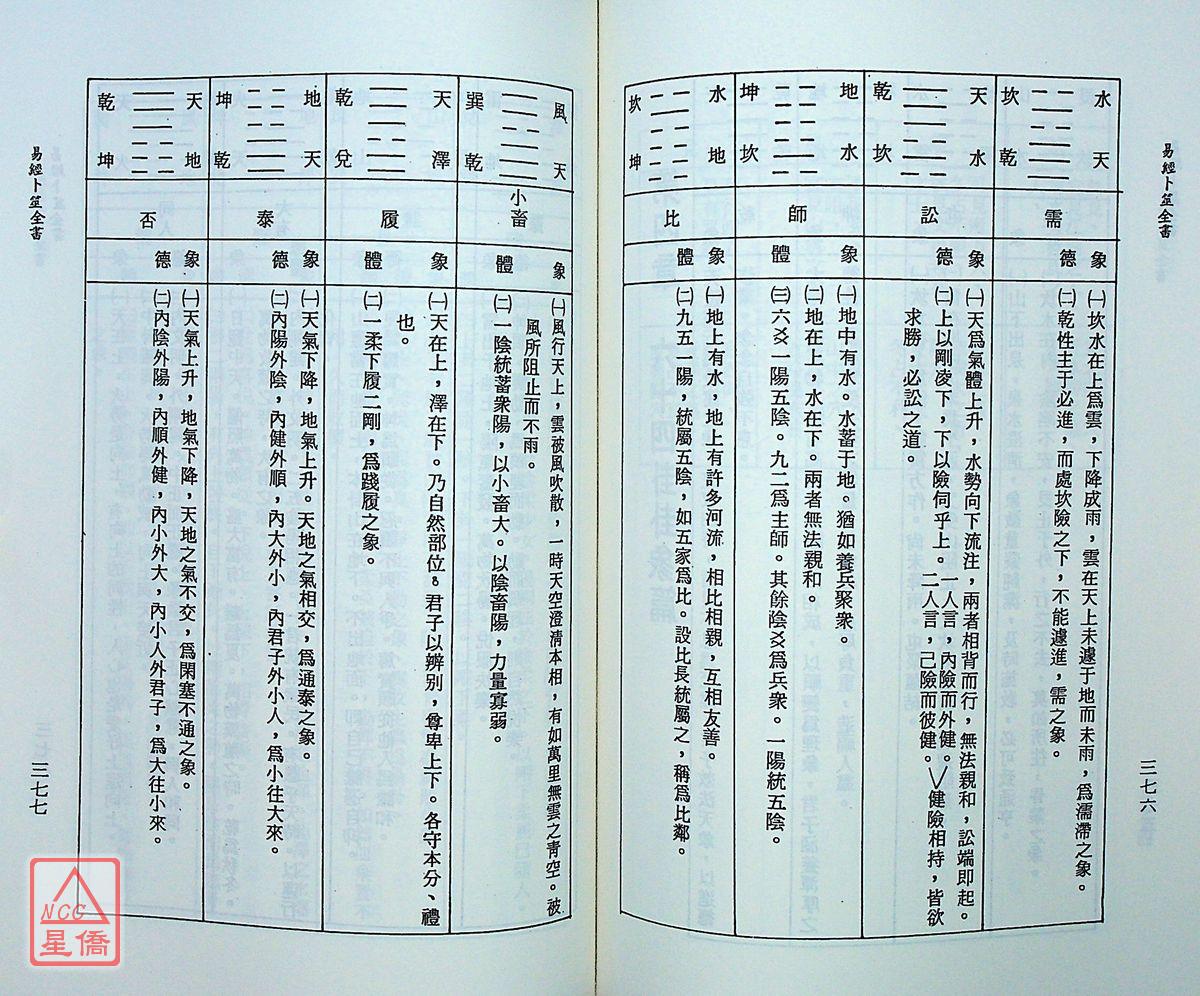 易經卜筮全書
三七六
水天
坎乾
需
象德
㈠坎水在上爲雲，下降成雨，雲在天上未遽于地而未雨，爲濡滯之象。
㈡乾性主于必進，而處坎險之下，不能遽進，需之象。
天水
乾坎
訟
象德
㈠天爲氣體上升，水勢向下流注，兩者相背而行，無法親和，訟端即起。
㈡上以剛凌下，下以險伺乎上。一人言，內險而外健。二人言，己險而彼健。＞健險相持，皆欲
求勝，必訟之道。
地水
坤坎
師
象體
㈠地中有水。水蓄于地。猶如養兵聚衆。
㈡地在上，水在下。兩者無法親和。
㈢六爻一陽五陰。九二爲主師。其餘陰爻爲兵衆。一陽統五陰。
水地
坎坤
比
象體
㈠地上有水，地上有許多河流，相比相親，互相友善。
㈡九五一陽，統屬五陰，如五家爲比。設比長統屬之，稱爲比鄰。
風天
巽乾
小畜
象體
㈠風行天上，雲被風吹散，一時天空澄清本相，有如萬里無雲之靑空。被
風所阻止而不雨。
㈡一陰統蓄衆陽，以小畜大。以陰畜陽，力量寡弱。
天澤
乾兌
履
象體
㈠天在上，澤在下。乃自然部位。君子以辨別，尊卑上下。各守本分、禮
也。
㈡一柔下履二剛，爲踐履之象。
地天
坤乾
泰
象德
㈠天氣下降，地氣上升。天地之氣相交，爲通泰之象。
㈡內陽外陰，內健外順，內大外小，內君子外小人，爲小往大來。
天地
乾坤
否
象德
㈠天氣上升，地氣下降，天地之氣不交，爲閑塞不通之象。
㈡內陰外陽，內順外健，內小外大，內小人外君子，爲大往小來。
易經卜筮全書
三七七
NCC
星僑